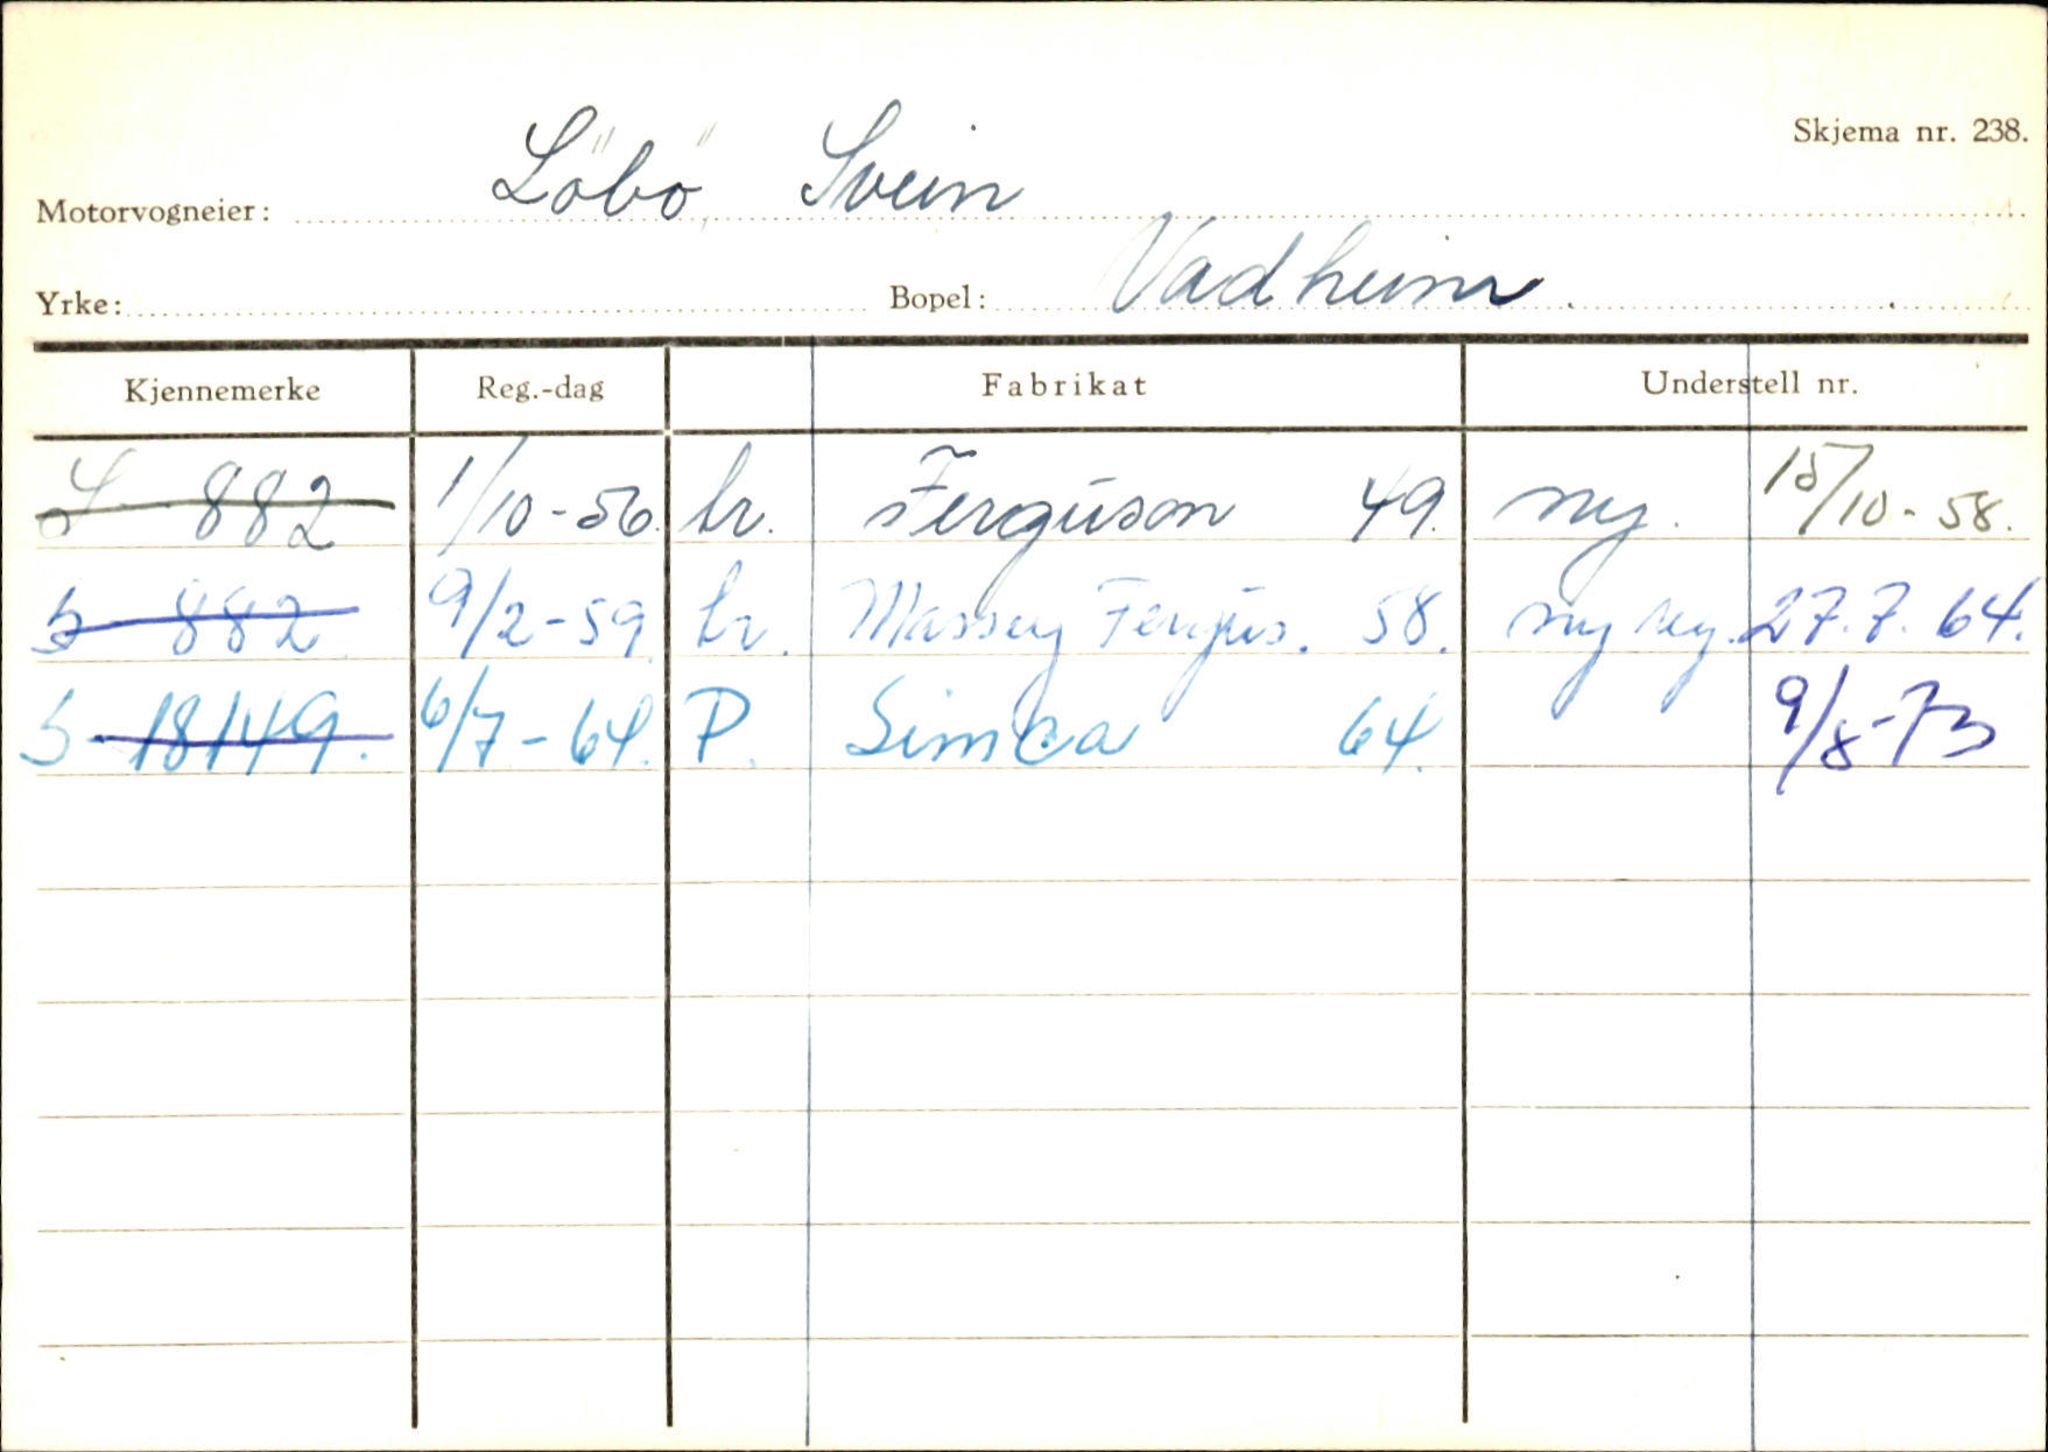 Skjema nr. 238.
Motorvogneier: Löbö, Svein
Yrke: Bopel: Vadheim
Kjennemerke Reg.-dag Fabrikat Understell nr.
S 882 1/10-56. tr. Ferguson 49. ny. 15/10-58.
S 882 9/2-59. tr. Massey Fergus. 58. ny reg. 27.7.64.
S-18149. 6/7-64. P. Simca 64. 9/8-73